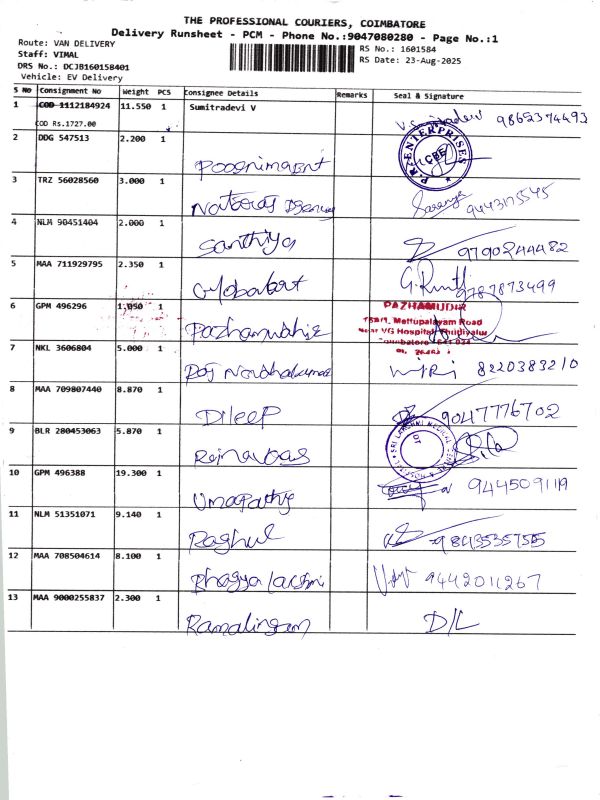 THE PROFESSIONAL COURIERS, COIMBATORE
Delivery Runsheet - PCM - Phone No.:9047080280 - Page No.:1
Route: VAN DELIVERY
Staff: VIMAL
DRS No.: DCJB160158401
Vehicle: EV Delivery
RS No.: 1601584
RS Date: 23-Aug-2025
S No Consignment No Weight PCS Consignee Details Remarks Seal & Signature
1 COD 1112184924 11.550 1 Sumitradevi V 9862374493
COD Rs.1727.00
2 DDG 547513 2.200 1 P.R. ENTERPRISES CBE
3 TRZ 56028560 3.000 1 9443175545
4 NLM 90451404 2.000 1 Santhiya 9790244482
5 MAA 711929795 2.350 1 9787873499
6 GPM 496296 1.050 1 PAZHAMUDIR
Mettupalayam Road
Near VG Hospital
7 NKL 3606804 5.000 1 8220383210
8 MAA 709807440 8.870 1 Dileep 9047776702
9 BLR 280453063 5.870 1 SRI LAKSHMI MEDICAL
10 GPM 496388 19.300 1 Umapathy 944509119
11 NLM 51351071 9.140 1 Raghul 9843535755
12 MAA 708504614 8.100 1 Bhagya lakshmi 9442011267
13 MAA 9000255837 2.300 1 Ramalingam D/L